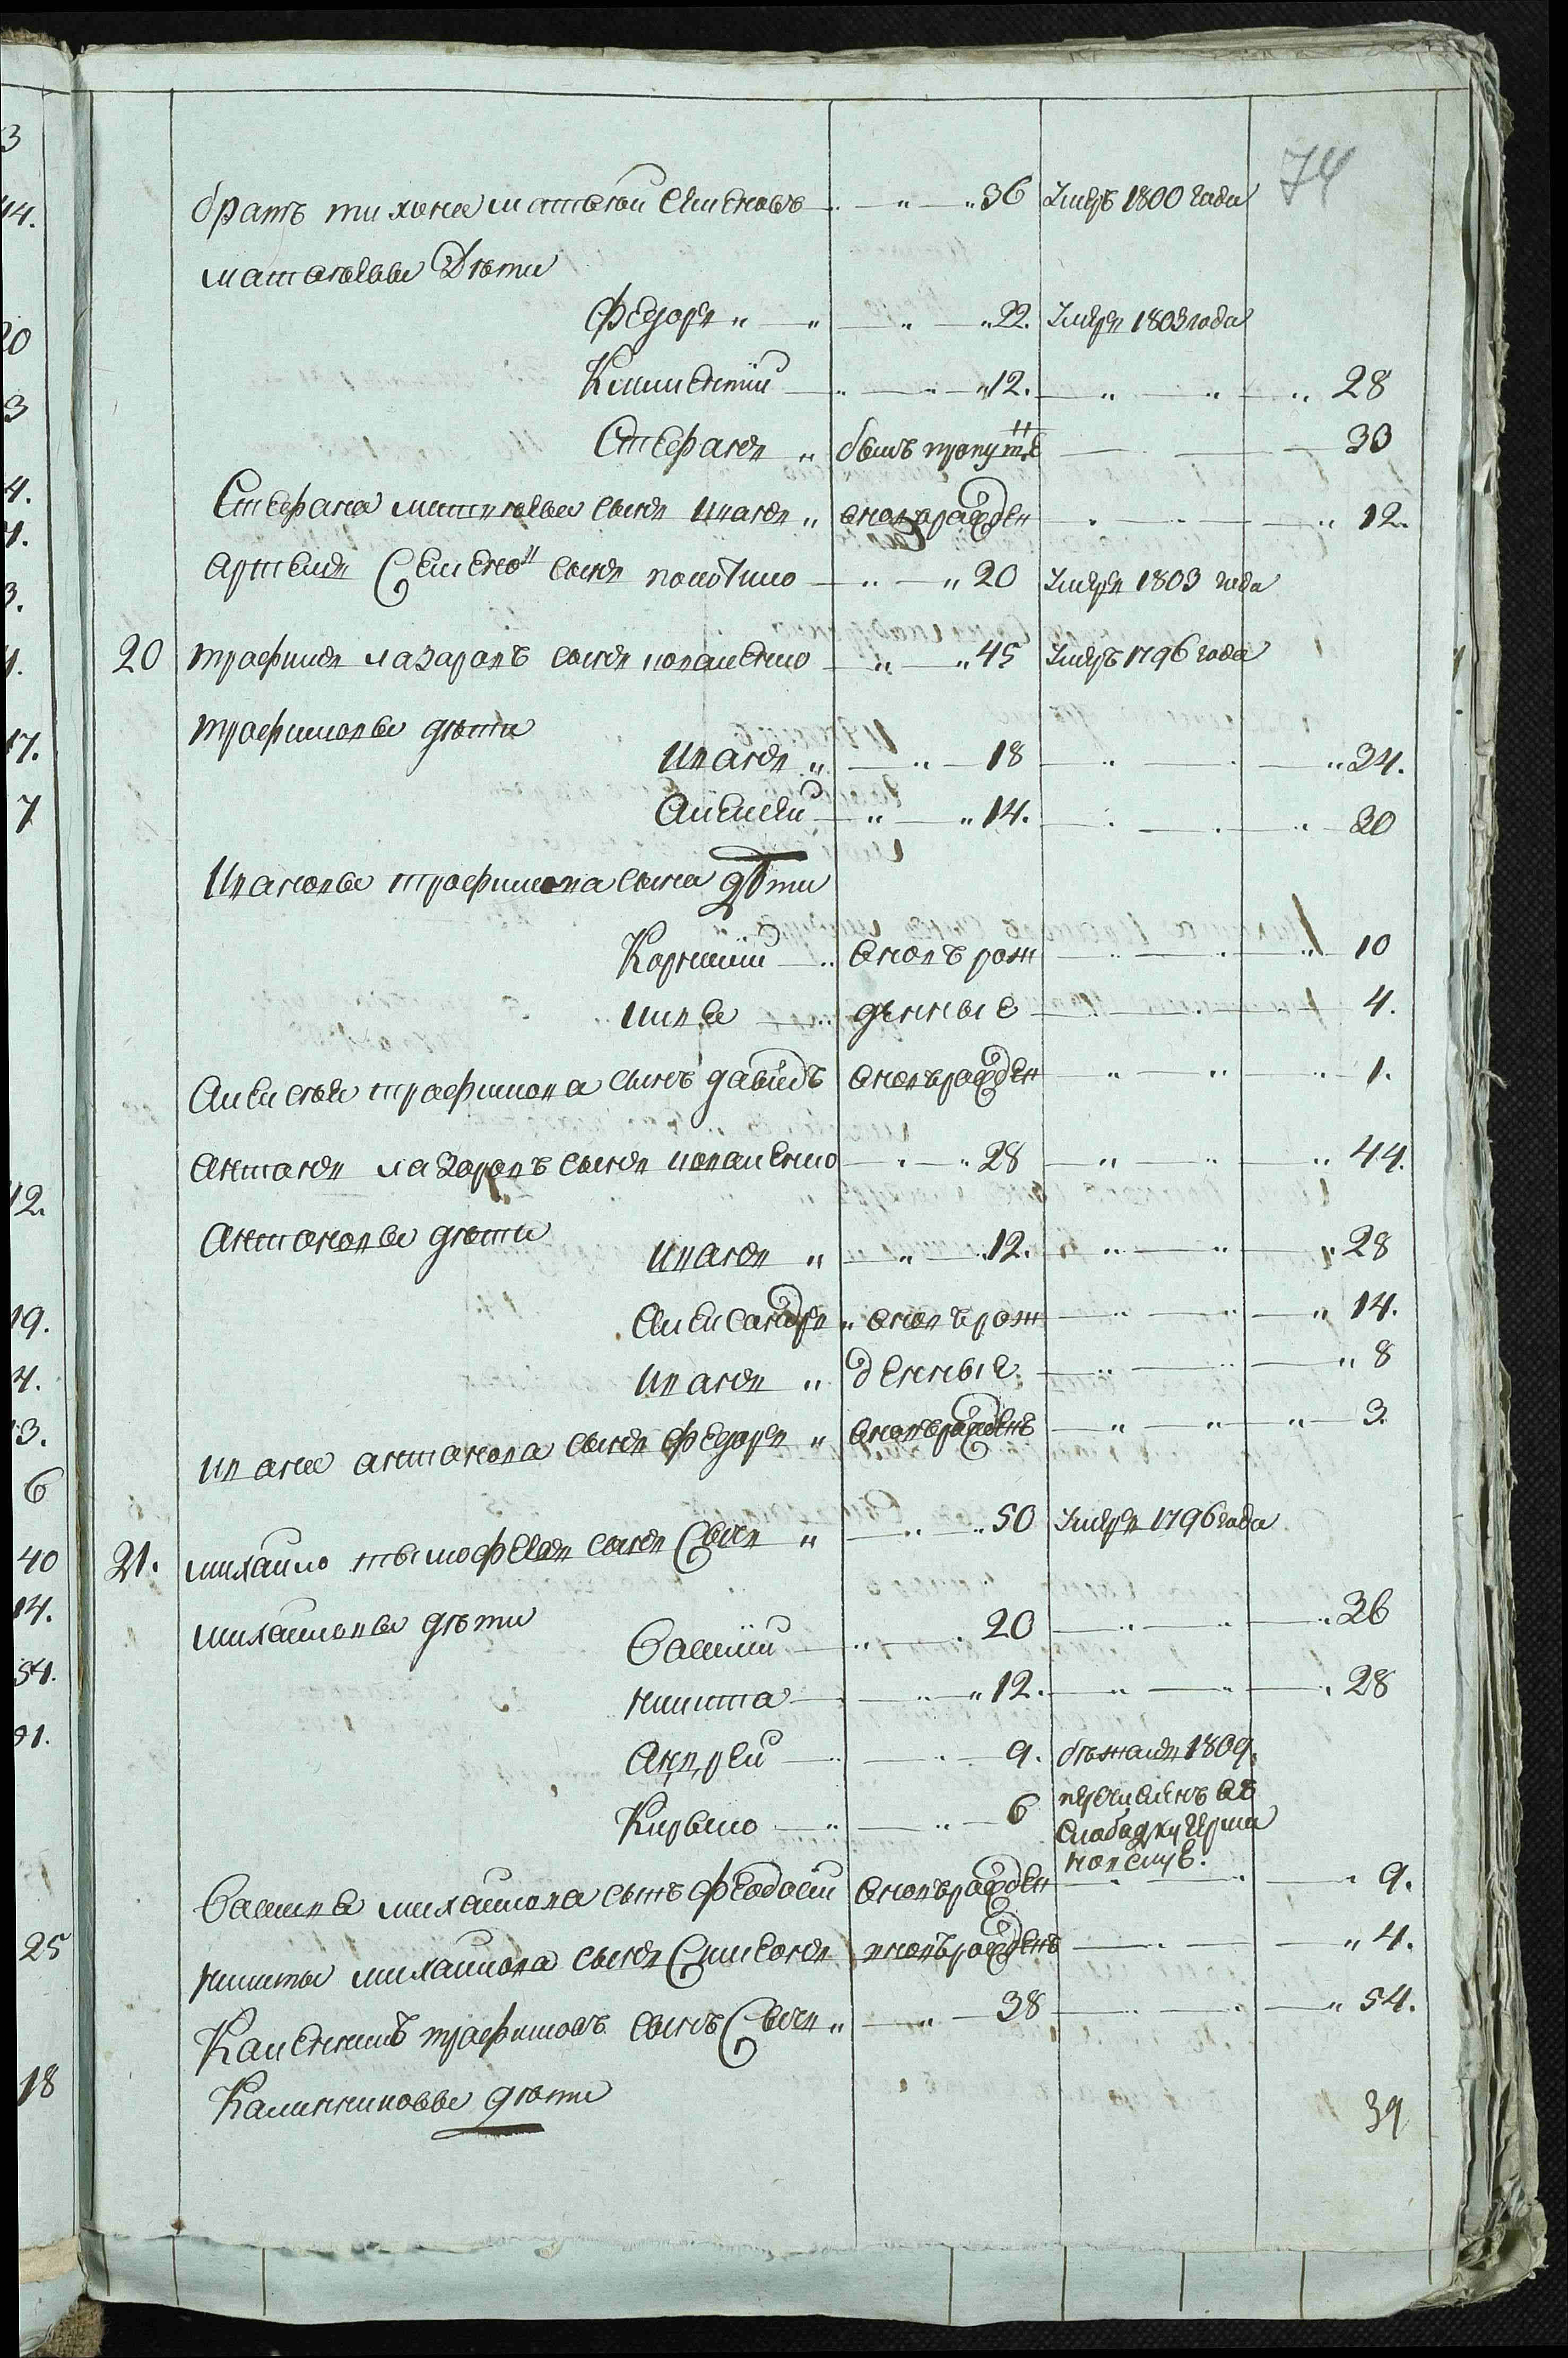 74
братъ тихона матвей Семеновъ 36 Умеръ 1800 года
матвѣевы Дѣти
Федоръ 22. Умеръ 1803 года
Климентій 12. 28
Стефанъ былъ пропущ 33
Стефана матвѣева сынъ иванъ вновърожден 12.
артемъ Семено сынъ 20 Умеръ 1803 года
20 трафимъ лазаровъ сынъ коваленко 45 Умеръ 1796 года
трофимовы дѣти
иванъ 18 34.
Алексей 14. 30
Ивановы трофимова сына дѣти
Корнилій вновъ рож 10
илья денные 4.
Алексѣя трофимова сынъ давидъ вновърожден 1.
антонъ лазаровъ сынъ коваленко 28 44.
Антоновы дѣти
иванъ 12. 28
Александръ вновърож 14.
иванъ денные 8
ивана антонова сынъ федоръ вновърожденъ 3.
21. михаило тымофеевъ сынъ Сыче 50 Умеръ 1796 года
михаиловы дѣти
Василій 20 36
никита 12. 28
Андрей 9. бѣжалъ 1809.
Кирыло 6 перечисленъ въ
Слободку
Василия михаилова сынъ феодосій вновърожден 9.
никиты михаилова сынъ Симеонъ вновърожденъ 4.
Каленникъ трофимовъ сынъ Сыче 38 54.
Калинниковы дѣти
39